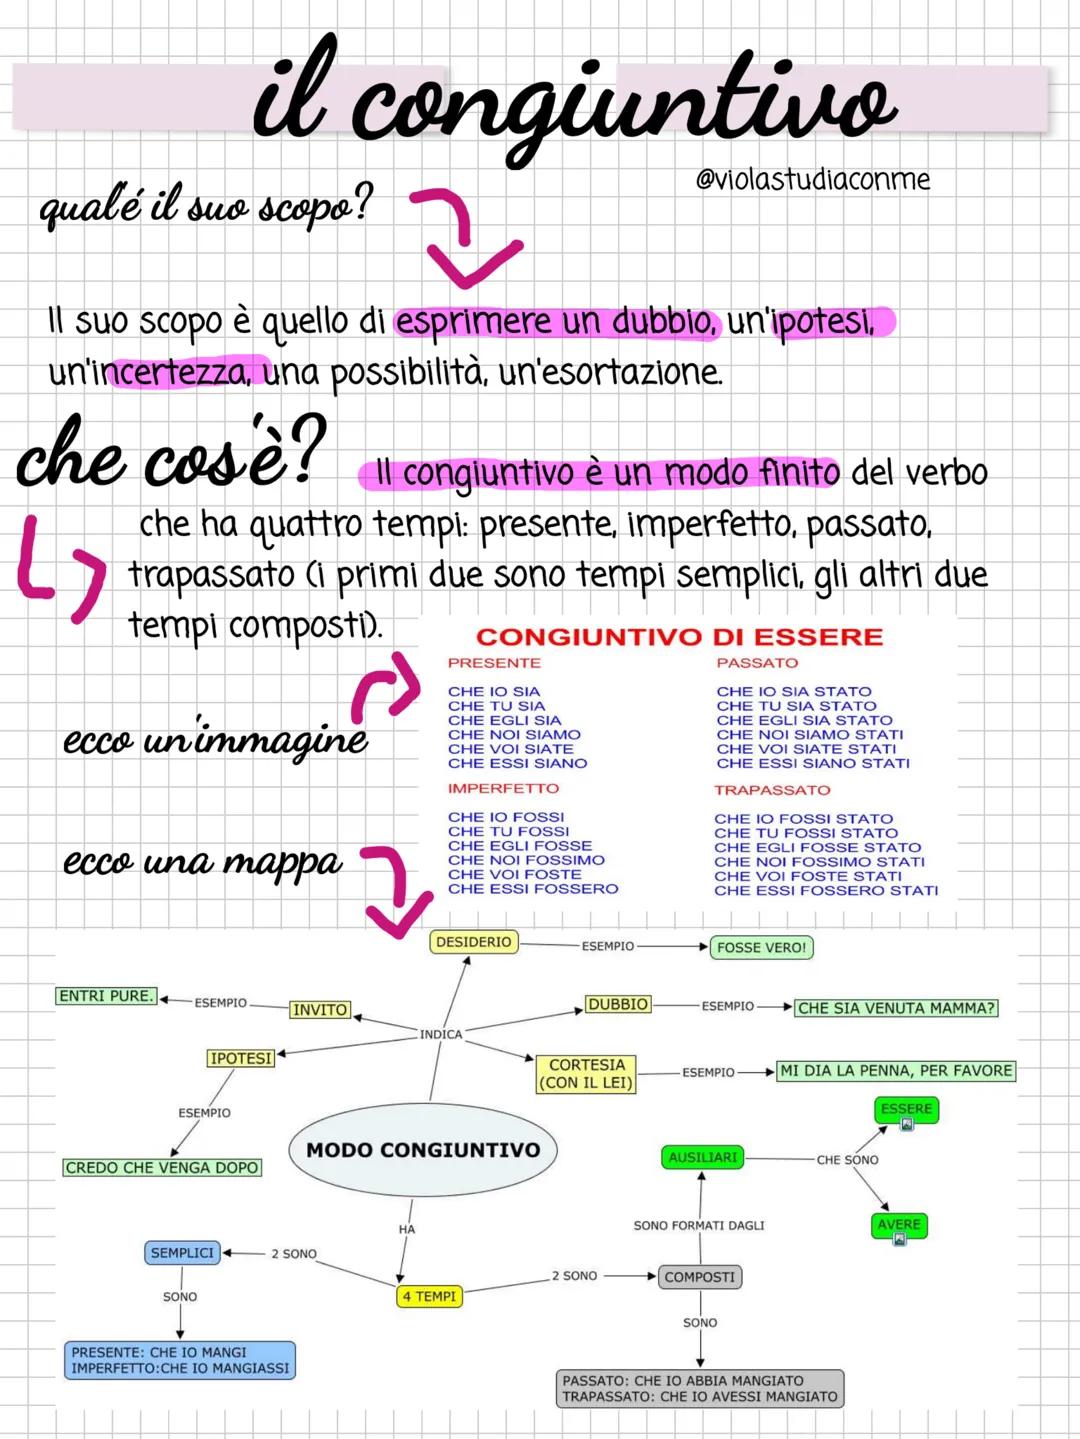 il congiuntivo
@violastudiaconme
qual'é il suo scopo?
Il suo scopo è quello di esprimere un dubbio, un'ipotesi,
un'incertezza, una possibilità, un'esortazione.
che cos'è?
Il congiuntivo è un modo finito del verbo
che ha quattro tempi: presente, imperfetto, passato,
trapassato (i primi due sono tempi semplici, gli altri due
tempi composti).
ecco un'immagine
CONGIUNTIVO DI ESSERE
PRESENTE
CHE IO SIA
CHE TU SIA
CHE EGLI SIA
CHE NOI SIAMO
CHE VOI SIATE
CHE ESSI SIANO
PASSATO
CHE IO SIA STATO
CHE TU SIA STATO
CHE EGLI SIA STATO
CHE NOI SIAMO STATI
CHE VOI SIATE STATI
CHE ESSI SIANO STATI
IMPERFETTO
CHE IO FOSSI
CHE TU FOSSI
CHE EGLI FOSSE
CHE NOI FOSSIMO
CHE VOI FOSTE
CHE ESSI FOSSERO
TRAPASSATO
CHE IO FOSSI STATO
CHE TU FOSSI STATO
CHE EGLI FOSSE STATO
CHE NOI FOSSIMO STATI
CHE VOI FOSTE STATI
CHE ESSI FOSSERO STATI
ecco una mappa
DESIDERIO
ESEMPIO
FOSSE VERO!
ENTRI PURE.
ESEMPIO
INVITO
DUBBIO
ESEMPIO
CHE SIA VENUTA MAMMA?
INDICA
IPOTESI
CORTESIA
(CON IL LEI)
ESEMPIO
MI DIA LA PENNA, PER FAVORE
ESEMPIO
CREDO CHE VENGA DOPO
MODO CONGIUNTIVO
ESSERE
AUSILIARI
CHE SONO
AVERE
SONO FORMATI DAGLI
HA
SEMPLICI
2 SONO
4 TEMPI
2 SONO
COMPOSTI
SONO
SONO
PRESENTE: CHE IO MANGI
IMPERFETTO:CHE IO MANGIASSI
PASSATO: CHE IO ABBIA MANGIATO
TRAPASSATO: CHE IO AVESSI MANGIATO